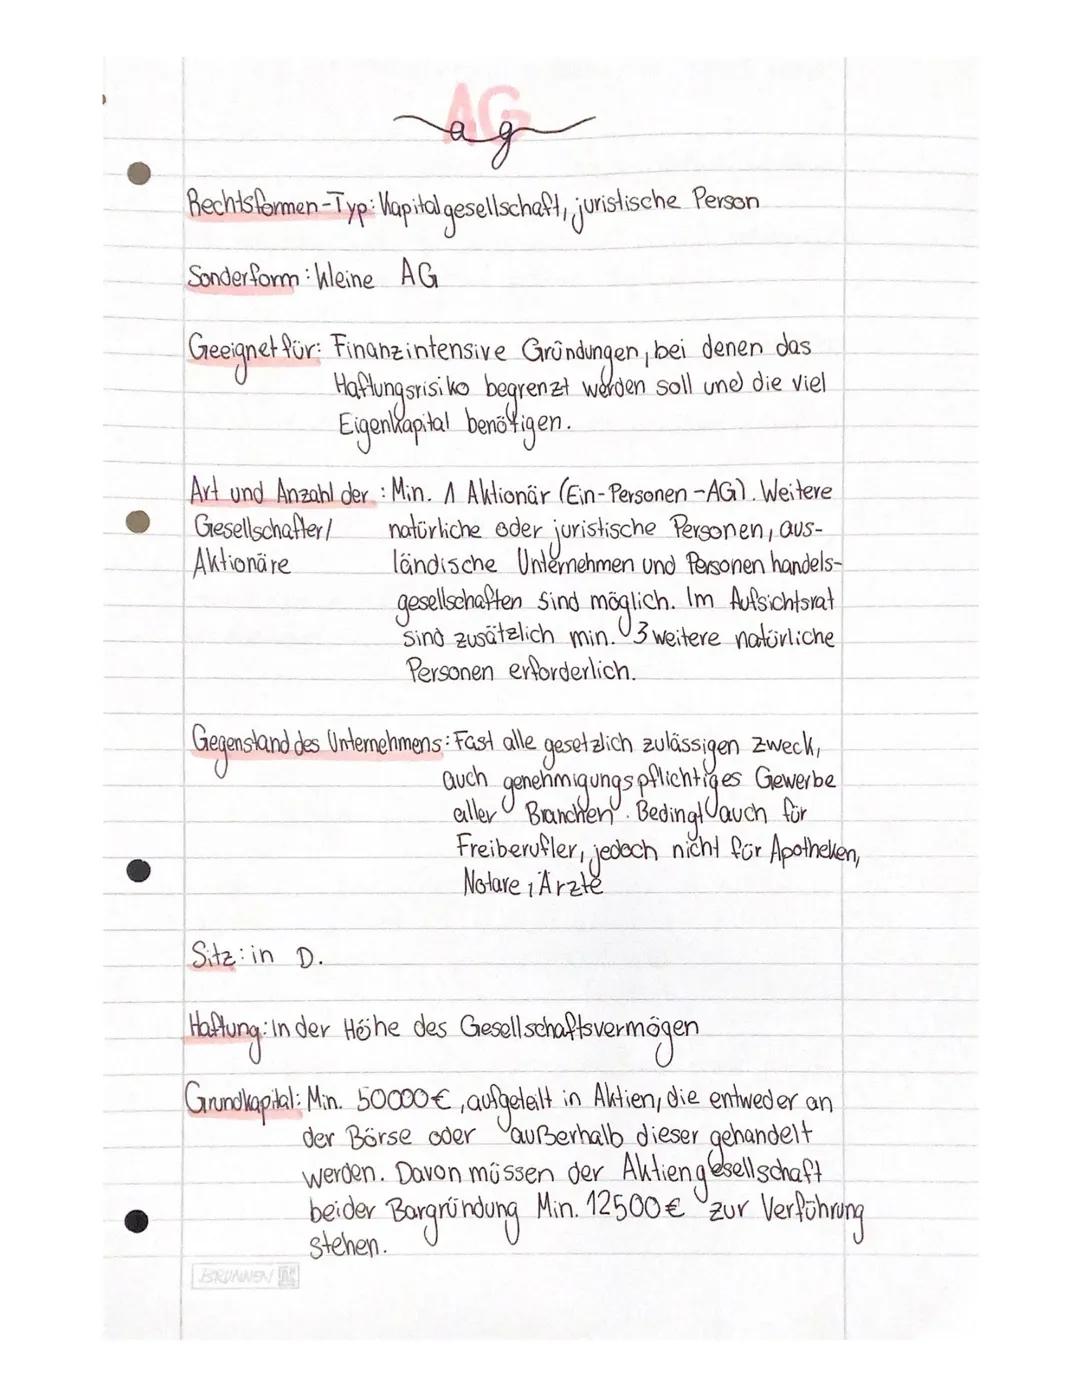 AG
ag
Rechtsformen-Typ: Kapitalgesellschaft, juristische Person
Sonderform: Kleine AG
Geeignet für: Finanzintensive Gründungen, bei denen das
Haftungsrisiko begrenzt werden soll und die viel
Eigenkapital benötigen.
Art und Anzahl der : Min. 1 Aktionär (Ein-Personen-AG). Weitere
Gesellschafter/ natürliche oder juristische Personen, aus-
Aktionäre ländische Unternehmen und Personen handels-
gesellschaften sind möglich. Im Aufsichtsrat
sind zusätzlich min. 3 weitere natürliche
Personen erforderlich.
Gegenstand des Unternehmens: Fast alle gesetzlich zulässigen Zweck,
auch genehmigungspflichtiges Gewerbe
aller Branchen. Bedingt auch für
Freiberufler, jedoch nicht für Apotheken,
Notare, Ärzte
Sitz: in D.
Haftung: in der Höhe des Gesellschaftsvermögen
Grundkapital: Min. 50000€, aufgeteilt in Aktien, die entweder an
der Börse oder außerhalb dieser gehandelt
werden. Davon müssen der Aktiengesellschaft
beider Bargründung Min. 12500€ zur Verführung
stehen.
BRUNNEN